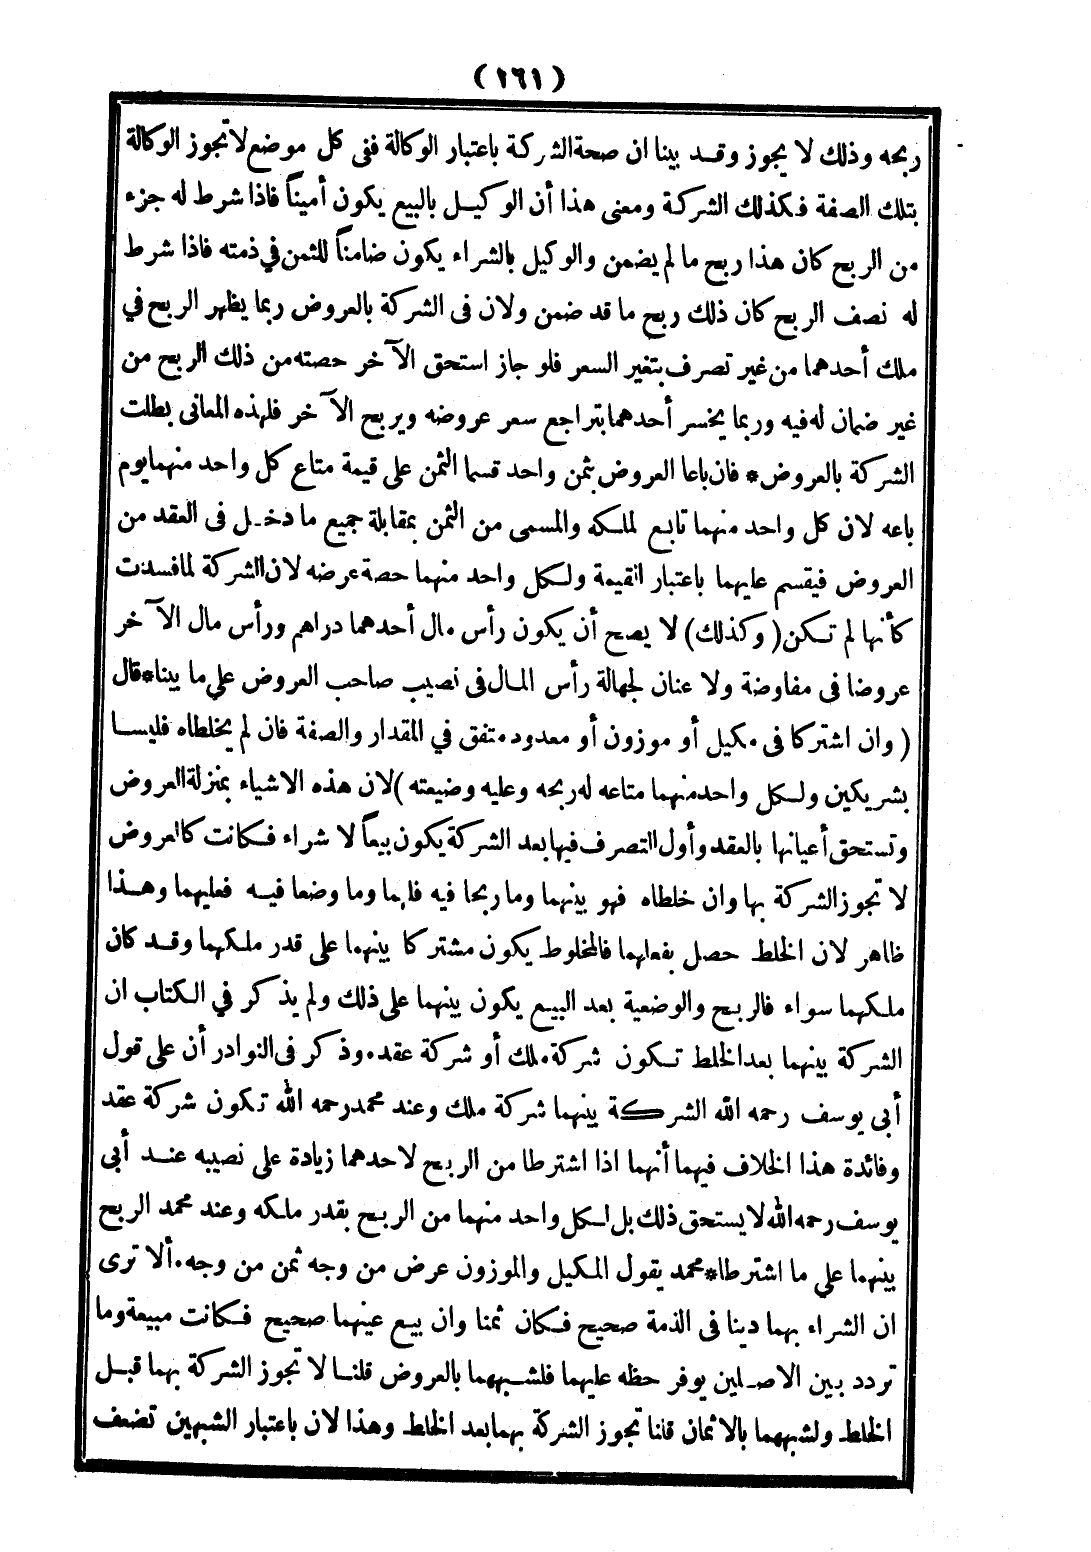 (١٦١)
ربحه وذلك لا يجوز وقد بينا ان صحة الشركة باعتبار الوكالة ففى كل موضع لا تجوز الوكالة
بتلك الصفة فكذلك الشركة ومعنى هذا أن الوكيل بالبيع يكون أميناً فاذا شرط له جزء
من الربح كان هذا ربح ما لم يضمن والوكيل بالشراء يكون ضامناً للثمن في ذمته فاذا شرط
له نصف الربح كان ذلك ربح ما قد ضمن ولان فى الشركة بالعروض ربما يظهر الربح في
ملك أحدهما من غير تصرف بتغير السعر فلو جاز استحق الآخر حصته من ذلك الربح من
غير ضمان له فيه وربما يخسر أحدهما بتراجع سعر عروضه ويربح الآخر فلهذه المعانى بطلت
الشركة بالعروض* فان باعا العروض بثمن واحد قسما الثمن على قيمة متاع كل واحد منهما يوم
باعه لان كل واحد منهما تابع لملكه والمسمى من الثمن بمقابلة جميع ما دخل فى العقد من
العروض فيقسم عليهما باعتبار القيمة ولكل واحد منهما حصة عرضه لان الشركة لما فسدت
كأنها لم تكن (وكذلك) لا يصح أن يكون رأس مال أحدهما دراهم ورأس مال الآخر
عروضا فى مفاوضة ولا عنان لجهالة رأس المال فى نصيب صاحب العروض علي ما بينا*قال
(وان اشتركا فى مكيل أو موزون أو معدود متفق في المقدار والصفة فان لم يخلطاه فليسا
بشريكين ولكل واحد منهما متاعه له ربحه وعليه وضيعته) لان هذه الاشياء بمنزلة العروض
وتستحق أعيانها بالعقد وأول التصرف فيها بعد الشركة يكون بيعاً لا شراء فكانت كالعروض
لا تجوز الشركة بها وان خلطاه فهو بينهما وما ربحا فيه فلهما وما وضعا فيه فعليهما وهذا
ظاهر لان الخلط حصل بفعلهما فالمخلوط يكون مشتركا بينهما على قدر ملكهما وقد كان
ملكهما سواء فالربح والوضعية بعد البيع يكون بينهما على ذلك ولم يذكر في الكتاب ان
الشركة بينهما بعد الخلط تكون شركة ملك أو شركة عقد. وذكر فى النوادر أن على قول
أبى يوسف رحمه الله الشركة بينهما شركة ملك وعند محمد رحمه الله تكون شركة عقد
وفائدة هذا الخلاف فيهما أنهما اذا اشترطا من الربح لاحدهما زيادة على نصيبه عند أبى
يوسف رحمه الله لا يستحق ذلك بل لكل واحد منهما من الربح بقدر ملكه وعند محمد الربح
بينهما علي ما اشترطا*محمد يقول المكيل والموزون عرض من وجه ثمن من وجه. ألا ترى
ان الشراء بهما دينا فى الذمة صحيح فكان ثمنا وان بيع عينهما صحيح فكانت مبيعة وما
تردد بين الاصلين يوفر حظه عليهما فلشبههما بالعروض قلنا لا تجوز الشركة بهما قبل
الخلط ولشبههما بالاثمان قلنا تجوز الشركة بهما بعد الخلط وهذا لان باعتبار الشبهين تضعف